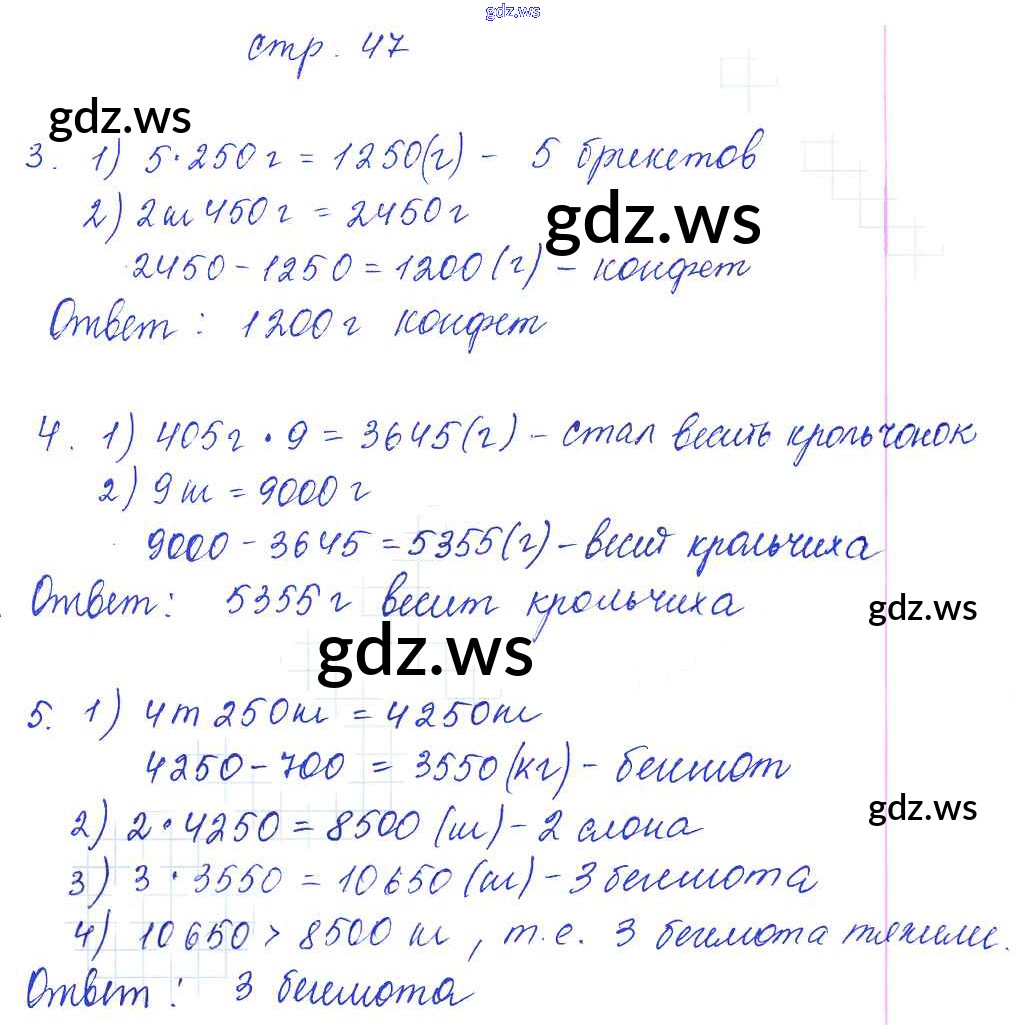 gdz.ws
стр. 47
gdz.ws
3. 1) 5·250г = 1250(г) - 5 брикетов
2) 2кг 450г = 2450г
gdz.ws
2450-1250=1200(г) - конфет
Ответ: 1200г конфет
4. 1) 405г·9=3645(г) - стал весить крольчонок
2) 9кг = 9000г
9000-3645=5355(г) - весит крольчиха
Ответ: 5355г весит крольчиха
gdz.ws
gdz.ws
5. 1) 4т 250кг = 4250кг
4250-700 = 3550(кг) - бегемот
gdz.ws
2) 2·4250=8500(кг) - 2 слона
3) 3·3550=10650(кг) - 3 бегемота
4) 10650>8500кг, т.е. 3 бегемота тяжили.
Ответ: 3 бегемота